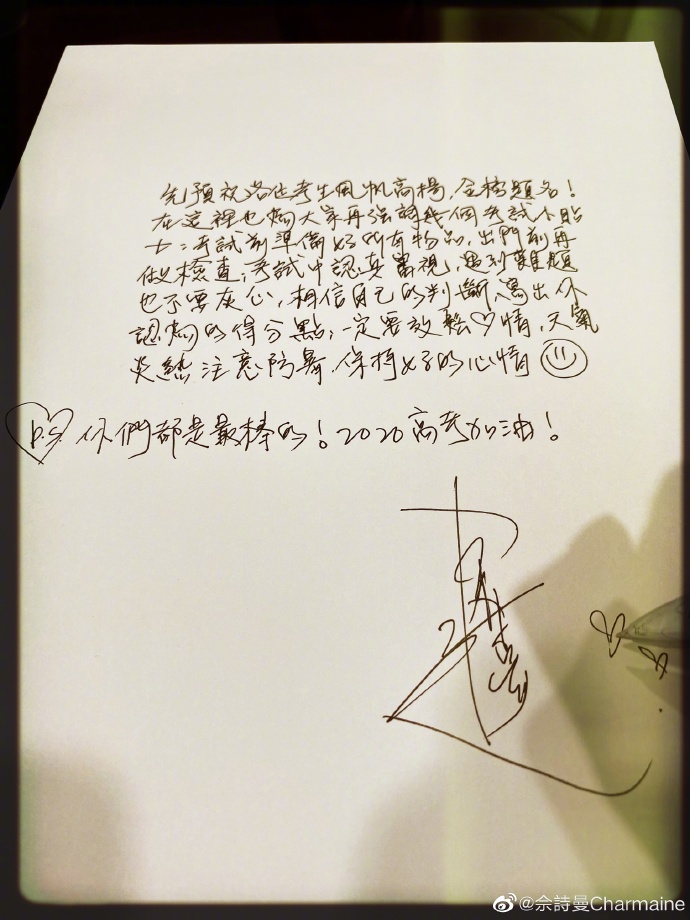 先預祝各位考生風帆高楊,金榜題名!
在這裡也向大家再強調幾個考試小貼
士:考試前準備好所有物品,出門前再
做檢查;考試中認真審視,遇到難題
也不要灰心,相信自己的判斷,寫出你
認為的得分點,一定要放鬆♡情,天氣
炎熱注意防暑.保持好的心情☺
P.S 你們都是最棒的!2020高考加油!
@佘詩曼Charmaine